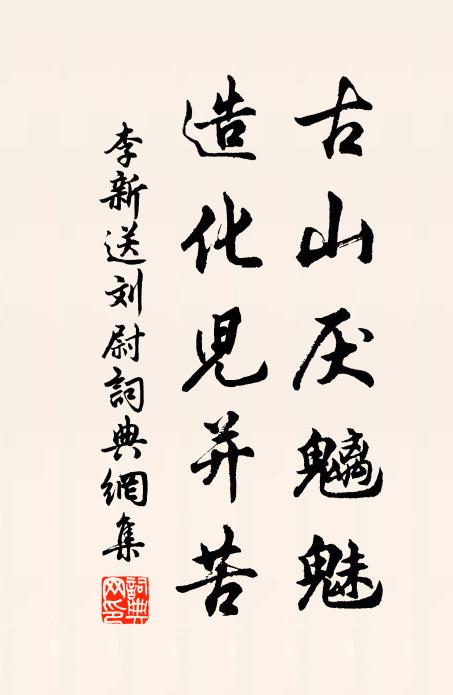 古山厌魑魅
造化児并苦
李新送刘尉詞典網集
詞典网印